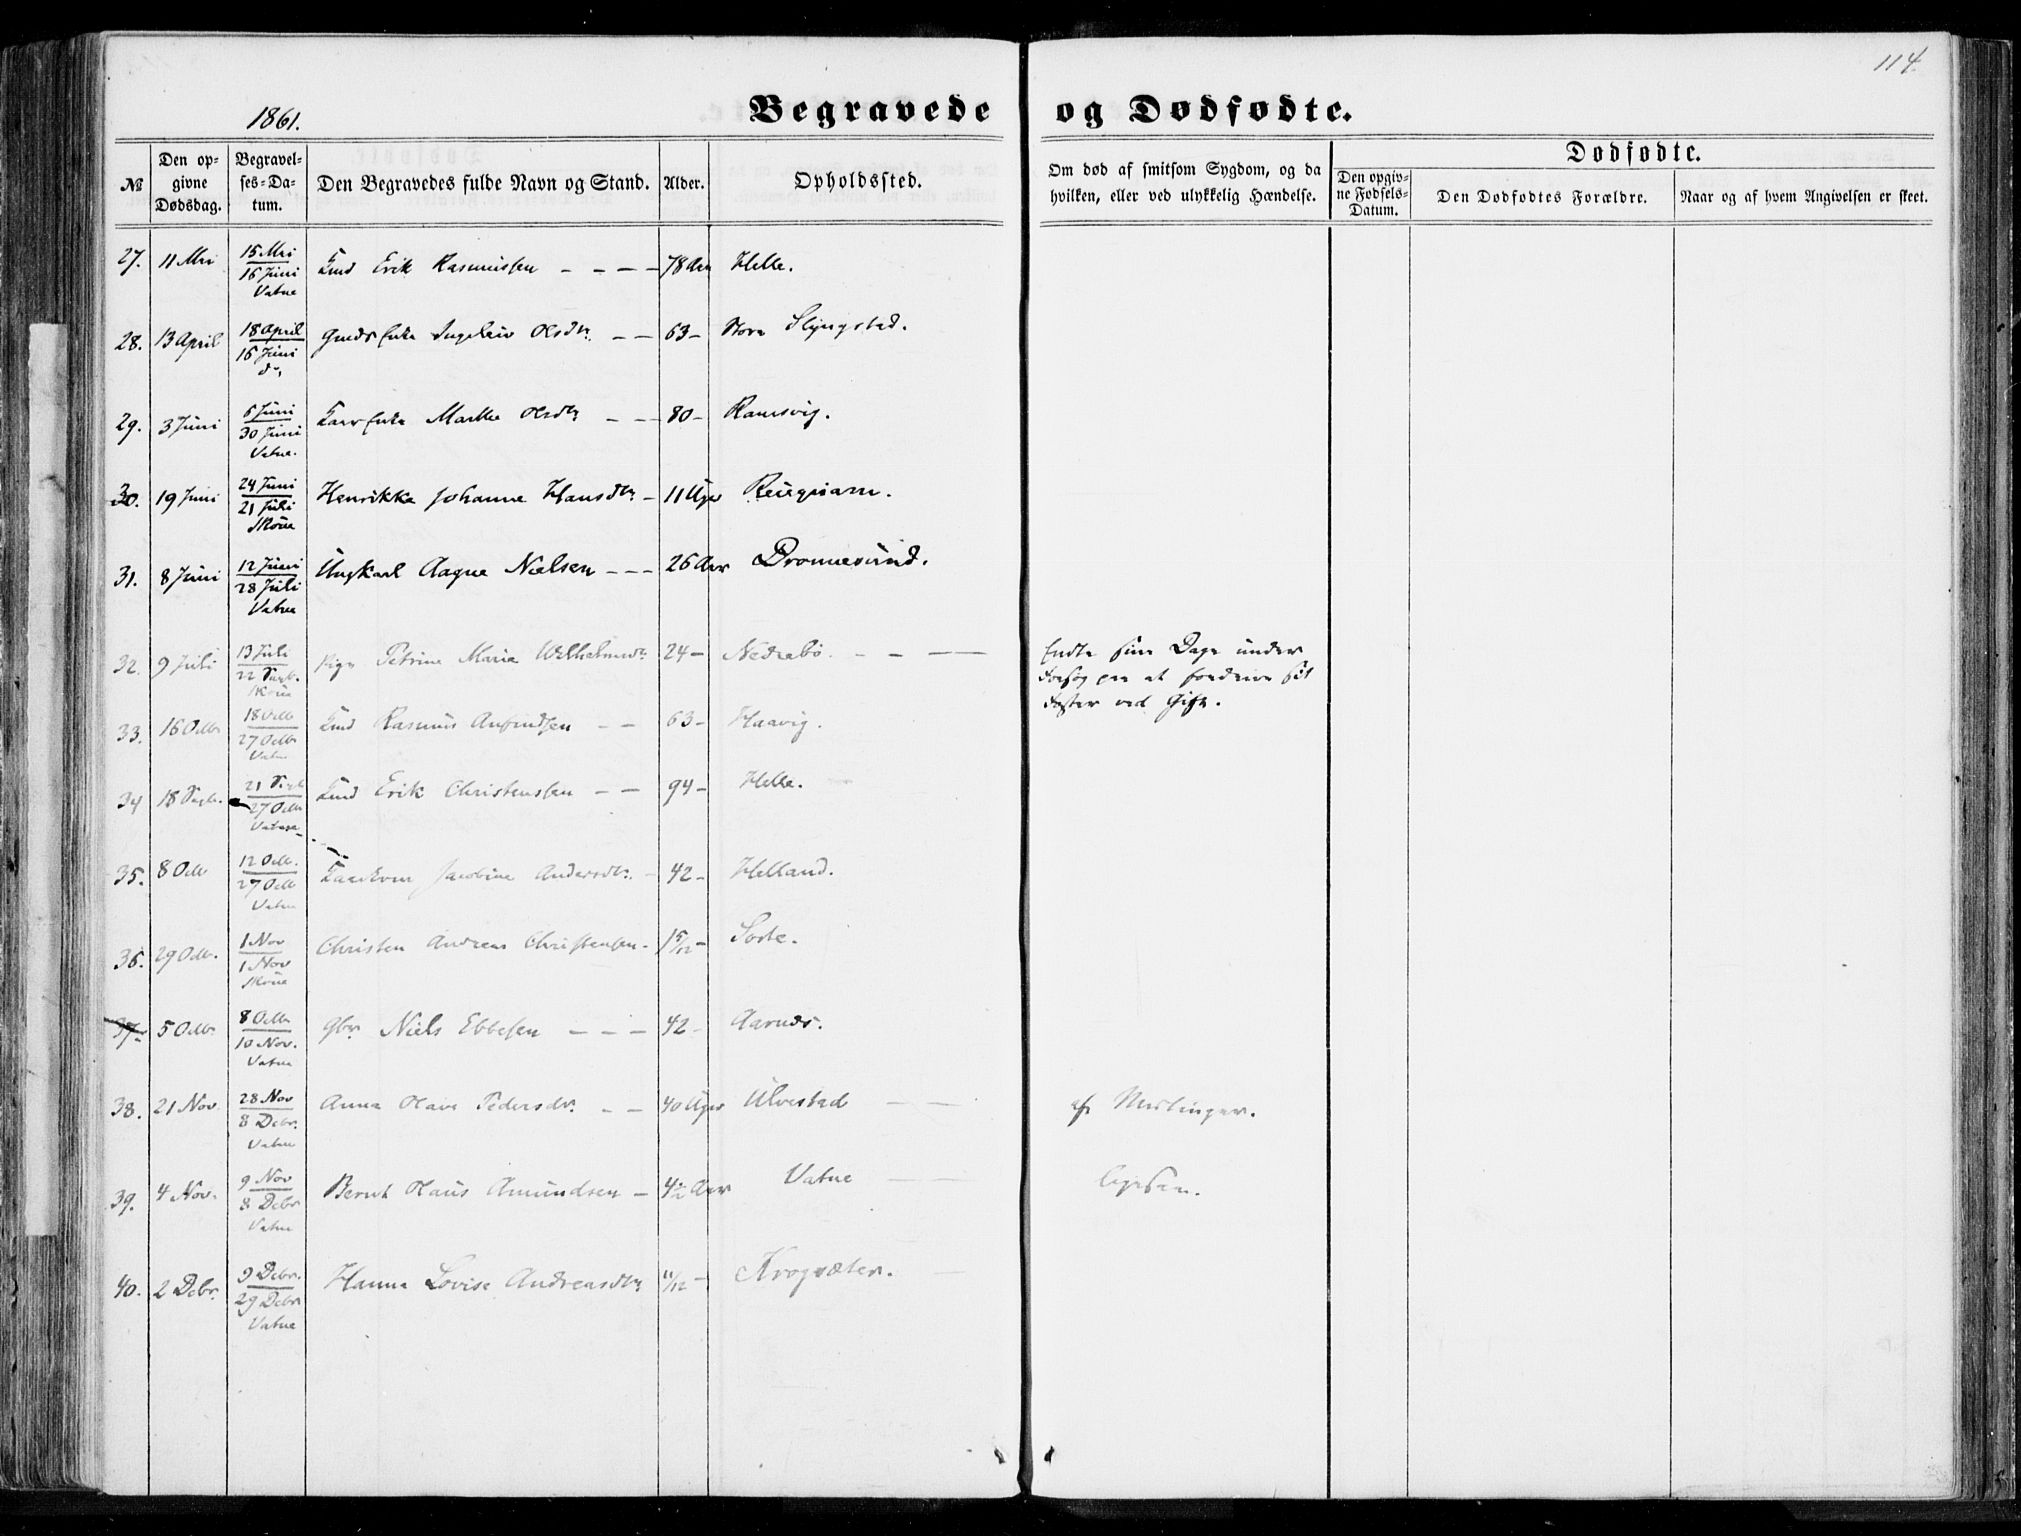 114.
1861.
Begravede og Dødfødte.
№ Den opgivne Dødsdag. Begravelses-Datum. Den Begravedes fulde Navn og Stand. Alder. Opholdssted. Om død af smitsom Sygdom, og da hvilken, eller ved ulykkelig Hændelse.
Dødfødte.
Den opgivne Fødsels-Datum. Den Dødfødtes Forældre. Naar og af hvem Angivelsen er skeet.
27. 11 Mai 15 Mai 16 Juni Vatne Erik Rasmussen 78 Aar Helle.
28. 13 April 18 April 16 Juni do, Olsdtr. 63 Store Slyngstad.
29. 3 Juni 6 Juni 30 Juni Vatne. Marthe Olsdtr 80 Ramsvig.
30. 19 Juni 24 Juni 21 Juli Skoue Henrikke Johanne Hansdtr 11 Uger
31. 8 Juni 12 Juni 28 Juli Vatne Ungkarl Aagne Nielsen 26 Aar Dronnesund.
32. 9 Juli 13 Juli 22 Septb. Skoue Pige Petrine Maria 24 Nedrebø. Endte sine Dage under
Forsøg paa at fordrive sit
Foster ved Gift.
33. 16 Octbr 18 Octb 27 Octbr Vatne Rasmus 63 Haavig.
34 18 Septb. 21 Septb 27 Octbr Vatne Erik Christenssen 94 Helle.
35. 8 Octb 12 Octb. 27 Octb Vatne Jacobine Andersdtr. 42 Helland.
36. 29 Octb. 1 Nov 1 Nov Skoue Christen Andreas Christensen 1 5/12
37. 5 Octbr. 8 Octbr 10 Nov. Vatne Gbr. Niels Ebbesen 42 Aarnes.
38. 21 Nov 28 Nov 8 Debr. Vatne Anna Olave Pedersdr. 40 Uger Ulvestad af Meslinger.
39. 4 Nov. 9 Nov 8 Debr Vatne Bernt Olaus Amundsen 4½ Aar Vatne ligesaa.
40. 2 Debr. 9 Debr. 29 Debr Vatne Hanna Lovise Andreasdtr 11/12 Krogsæter.